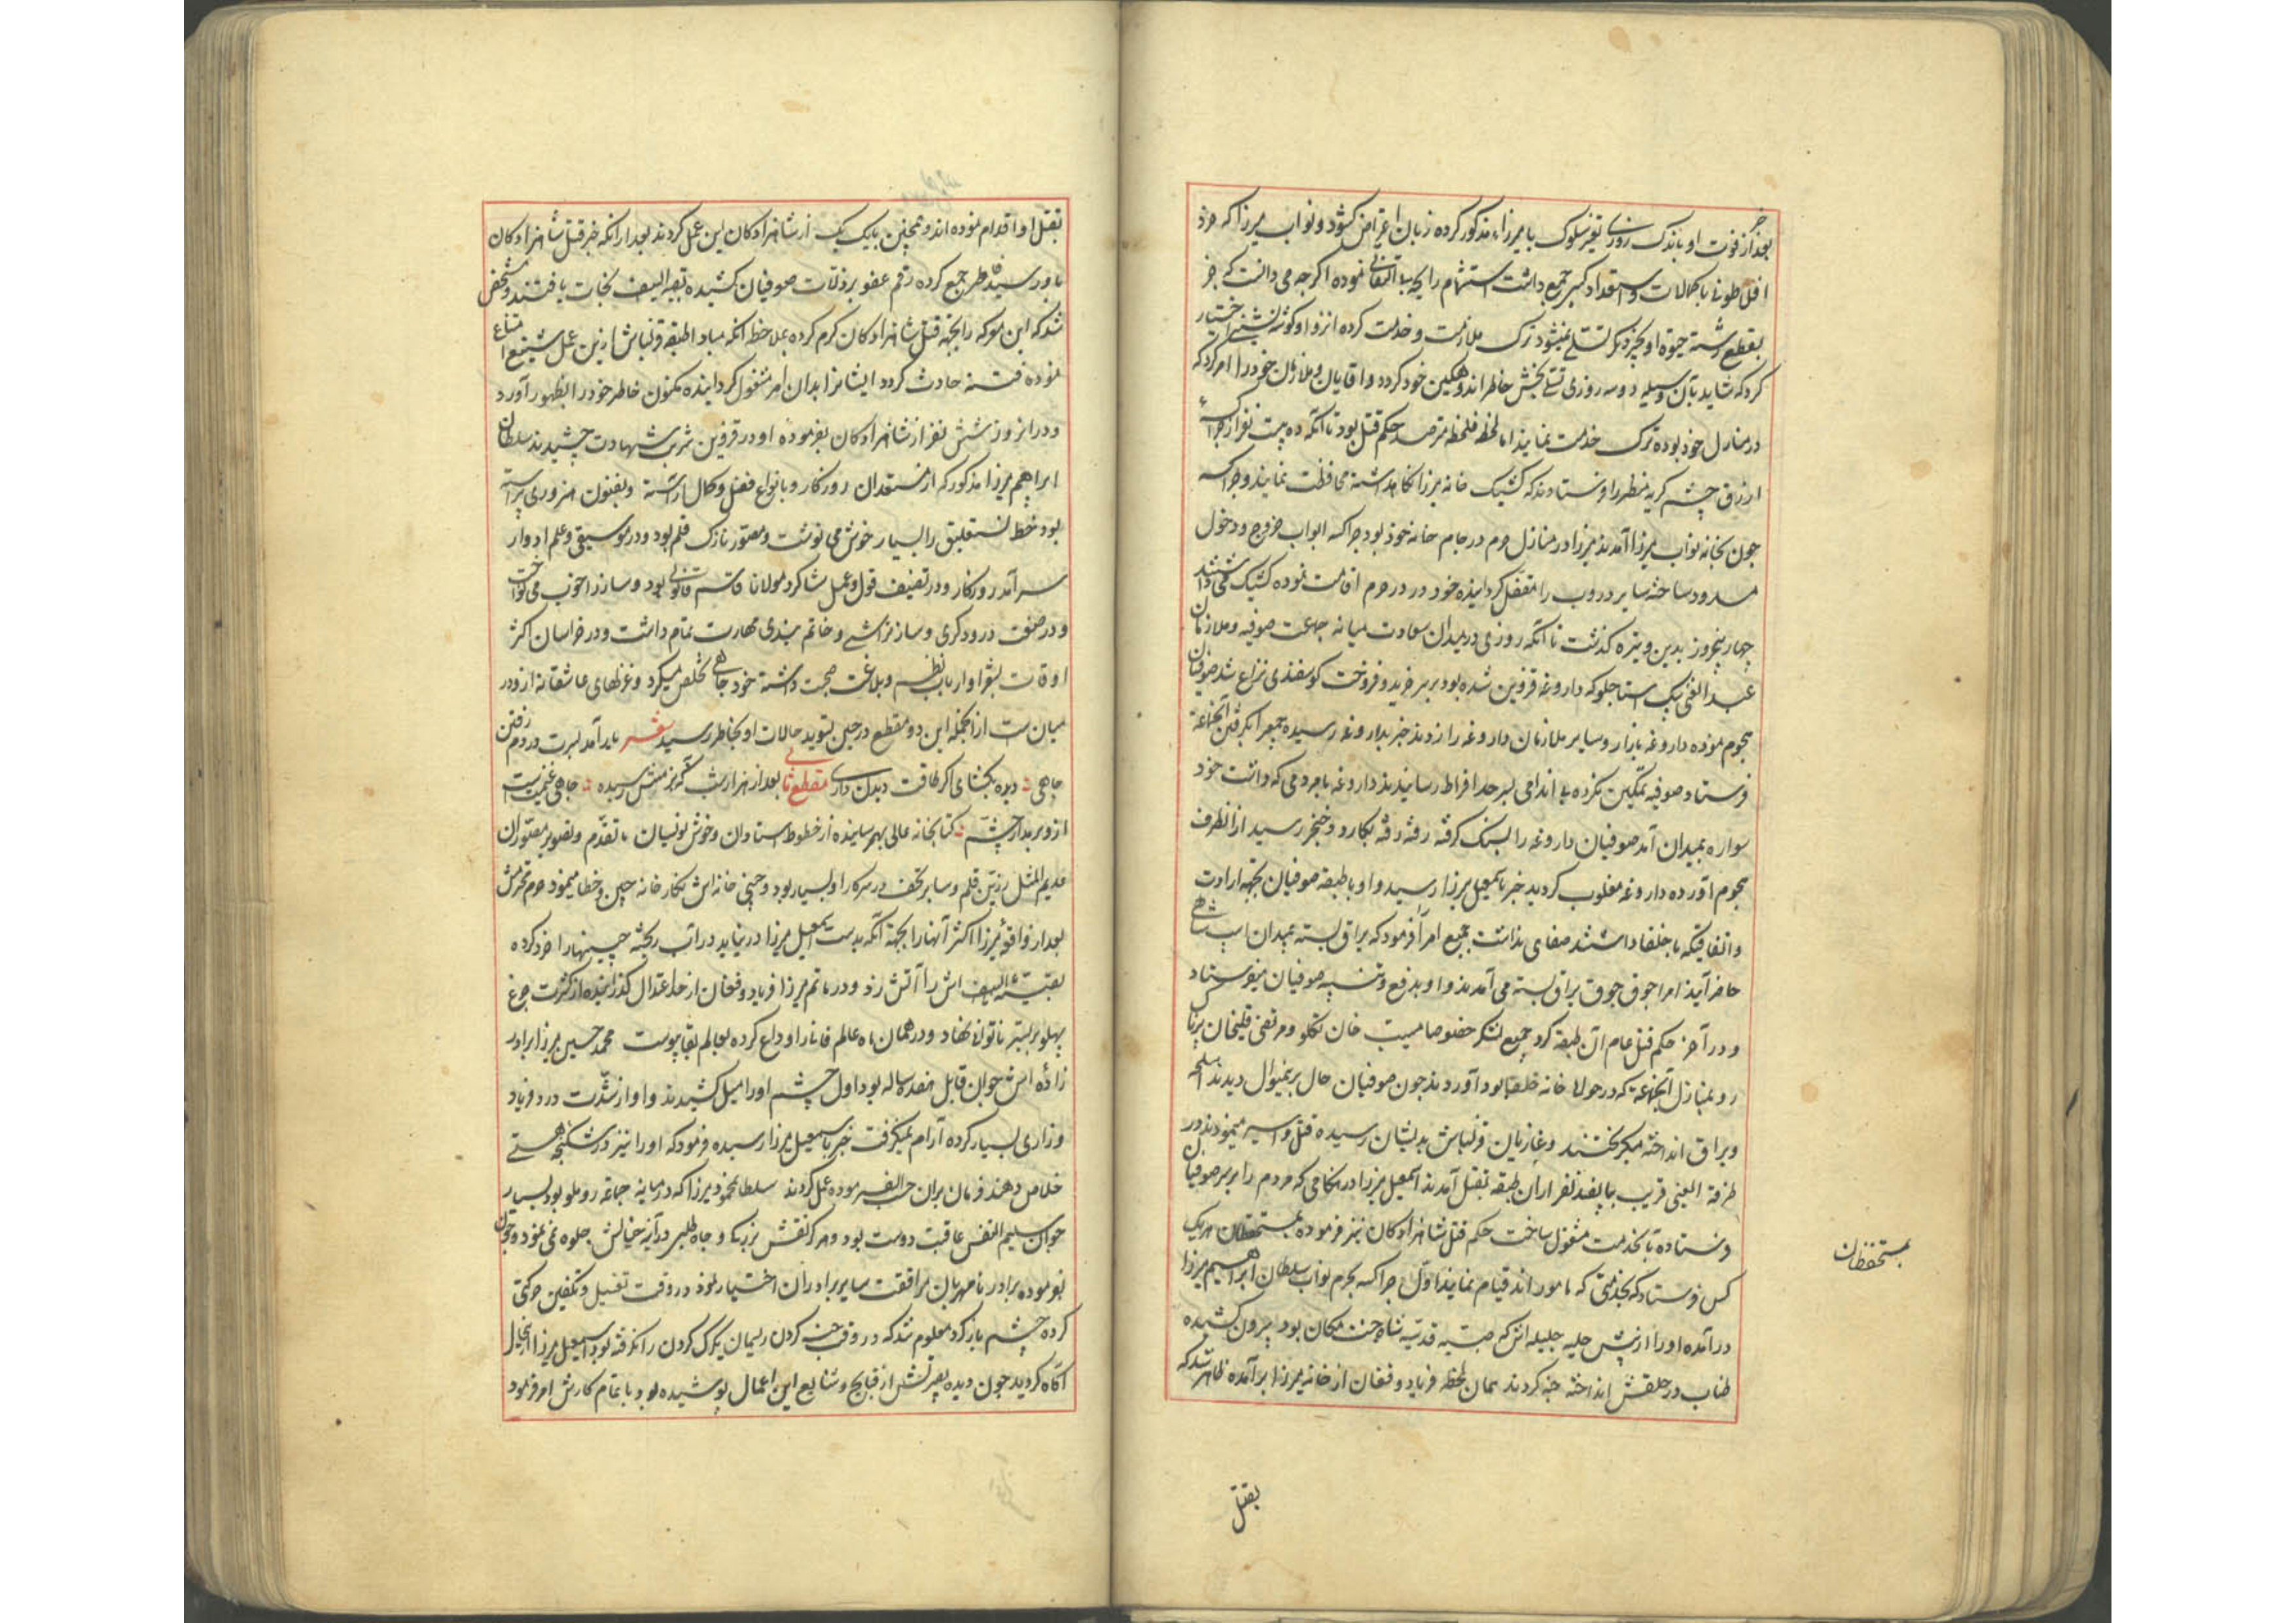 بعد از فوت او باندک روزی تغیر سلوک با میرزا مذکور کرده زبان اعتراض کشود و نواب میرزا که خرد
افلاطونی با کمالات و استعداد کسبی جمع داشت استشمام رایحه بی التفاتی نموده اکرچه می دانست که جز
بقطع رشته حیوة او بچیز دیکر تسلی نمیشود ترک ملازمت و خدمت کرده انزوا و کوشه نشینی اختیار
کرد که شاید بآن وسیله دو سه روزی تسلی بخش خاطر اندوهکین خود کردد و اقایان و ملازمان خود را امر کرد که
در منازل خود بوده ترک خدمت نمایند اما لحظه فلحظه مترصد حکم قتل بود تا آنکه ده بیست نفر از چراکسه
ازرق چشم کریه منظر را فرستادند که کشیک خانه میرزا نکاهداشته محافظت نمایند و چراکسه
چون بخانه نواب میرزا آمدند میرزا در منازل حرم در جام خانه خود بود چراکسه ابواب خروج و دخول
مسدود ساخته سایر دروب را مقفل کردانیده خود در در حرم اقامت نموده کشیک می داشتند
چهار پنج روز بدین وتیره کذشت تا آنکه روزی در میدان سعادت میانه جماعت صوفیه و ملازمان
عبدالغنی بیک استاجلو که داروغه قزوین شده بود بر سر خرید و فروخت کوسفندی نزاع شد صوفیان
هجوم نموده داروغه بازار و سایر ملازمان داروغه را زدند خبر بداروغه رسیده جمعی را بکرفتن آنجماعة
فرستاد صوفیه تمکین نکرده بی اندامی بسرحد افراط رسانیدند داروغه با مردمی که داشت خود
سواره بمیدان آمد صوفیان داروغه را بسنک کرفته رفته رفته بکارد و خنجر رسید از انطرف
هجوم آورده داروغه مغلوب کردید خبر باسمعیل میرزا رسید و او با طبقه صوفیان بجهة ارادت
و اتفاقیکه با خلفا داشتند صفای نداشت جمیع امرا را فرمود که یراق بسته بمیدان اسب شاهی
حاضر آیند امرا جوق جوق یراق بسته می آمدند و او بدفع و تنبیه صوفیان میفرستاد
و در آخر حکم قتل عام آن طبقه کرد جمیع لشکر خصوصا مسیب خان تکلو و مرتضی قلیخان پرناک
رو بمنازل آنجماعة که در حولا خانه خلفا بود آوردند چون صوفیان حال بر نمیوال دیدند اسلحه
و یراق انداخته میکریختند و غازیان قزلباش بدیشان رسیده قتل و اسیر مینمودند در
طرفة العینی قریب بپانصد نفر از ان طبقه بقتل آمدند اسمعیل میرزا در هنکامی که مردم را بر سر صوفیان
فرستاده بآنخدمت مشغول ساخت حکم قتل شاهزادکان نیز فرموده بمستحفظان هر یک
کس فرستاد که بخدمتی که مامور اند قیام نمایند اول چراکسه بحرم نواب سلطان ابراهیم میرزا
در آمده او را از پیش حلیه جلیله اش که صبیه قدسیه شاه جنت مکان بود بیرون کشیده
طناب در حلقش انداخته خبه کردند همان لحظه فریاد و فغان از خانه میرزا بر آمده ظاهر شد که
بمستحفظان
بقتل
بقتل او اقدام نموده اند و همچنین با یک یک از شاهزادکان این عمل کردند بعد از انکه خبر قتل شاهزادکان
باو رسید خاطر جمع کرده رقم عفو بر ذلات صوفیان کشیده بقیة السیف نجات یافتند و مشخص
شد که این معرکه را بجهة قتل شاهزادکان کرم کرده بملاحظه آنکه مبادا طبقه قزلباش ازین عمل شنیع امتناع
نموده فتنه حادث کردد ایشانرا بدان امر مشغول کردانیده مکنون خاطر خود را بظهور آورد
و در انروز شش نفر از شاهزادکان بفرموده او در قزوین شربت شهادت چشیدند سلطان
ابراهیم میرزا مذکور که از مستعدان روزکار و بانواع فضل و کمال آراسته و بفنون هنروری پیراسته
بود خط نستعلیق را بسیار خوش می نوشت و مصور نازک قلم بود و در موسیقی و علم ادوار
سرآمد روزکار و در تصنیف قول و عمل شاکرد مولانا قاسم قانونی بود و ساز را خوب می نواخت
و در صنعت درودکری و ساز تراشی و خاتم بندی مهارت تمام داشت و در خراسان اکثر
اوقات بشعرا و ارباب نظم و بلاغت صحبت داشته خود جاهی تخلص میکرد و غزلهای عاشقانه از و در
میان ست از انجمله این دو مقطع در حین تسوید حالات او بخاطر رسید شعر یار آمد بسرت در دم رفتن
جاهی دیده بکشای اکر طاقت دیدن داری مقطع ثانی بعد از هزار شب که بزمش رسیده جاهی غنیمت است
ازو بر مدار چشم کتابخانه عالی بهم رسانیده از خطوط استادان و خوش نویسان ما تقدم و تصویر مصوران
عدیم المثل رزین قلم و سایر تحف در سرکار او بسیار بود و چینی خانه اش نکار خانه چین و خطا مینمود حرم محترمش
بعد از واقعه میرزا اکثر آنها را بجهة آنکه بدست اسمعیل میرزا در نیاید در آب ریخته چینیها را خرد کرده
بقیة السیف اش را آتش زد و در ماتم میرزا فریاد و فغان از حد اعتدال کذرانیده از کثرت جزع
پهلو بر بستر ناتوانی نهاد و در همان ماه عالم فانی را وداع کرده بعالم بقا پیوست محمد حسین میرزا برادر
زاده اش جوان قابل هفده ساله بود اول چشم او را میل کشیدند و او از شدت درد فریاد
و زاری بسیار کرده آرام نمیکرفت خبر باسمعیل میرزا رسیده فرمود که او را نیز از شکنجه هستی
خلاص دهند فرمان بران حسب الفرموده عمل کردند سلطان محمود میرزا که در میانه جماعه روملو بود بسیار
جوان سلیم النفس عاقبت دوست بود و هر کز نقش بزرکی و جاه طلبی در آینه خیالش جلوه نمی نمود و چون
بفرموده برادر نامهربان مرافقت سایر برادران اختیار نمود در وقت تغسیل و تکفین حرکتی
کرده چشم باز کرد معلوم شد که در وقت خبه کردن ریسمان یکرک کردن را نکرفته بود اسمعیل میرزا از انحال
آکاه کردید چون دیده بصیرتش از قبایح و شنایع این اعمال پوشیده بود باتمام کارش امر فرمود